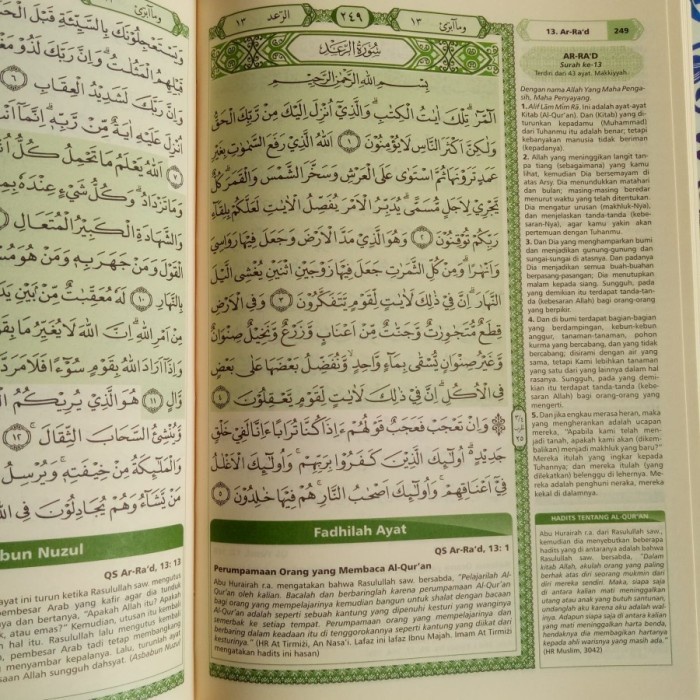 وَيَسْتَعْجِلُوْنَكَ بِالسَّيِّئَةِ قَبْلَ
قَبْلِهِمُ الْمَثُلٰتُ ۗوَاِنَّ رَبَّكَ لَذُوْ
وَاِنَّ رَبَّكَ لَشَدِيْدُ الْعِقَابِ ٦
اُنْزِلَ عَلَيْهِ اٰيَةٌ مِّنْ رَّبِّهٖ ۗاِنَّمَآ
٧ اَللّٰهُ يَعْلَمُ مَا تَحْمِلُ كُلُّ
وَمَا تَزْدَادُ ۗوَكُلُّ شَيْءٍ عِنْدَهٗ
وَالشَّهَادَةِ الْكَبِيْرُ الْمُتَعَالِ
الْقَوْلَ وَمَنْ جَهَرَ بِهٖ وَمَنْ هُوَ
بِالنَّهَارِ ١٠ لَهٗ مُعَقِّبٰتٌ مِّنْۢ بَيْنِ
مِنْ اَمْرِ اللّٰهِ ۗاِنَّ اللّٰهَ لَا يُغَيِّرُ مَا
وَاِذَآ اَرَادَ اللّٰهُ بِقَوْمٍ سُوْۤءًا فَلَا مَرَدَّ
وَّالٍ ١١ هُوَ الَّذِيْ يُرِيْكُمُ
وَّيُنْشِئُ السَّحَابَ الثِّقَالَ ١٢
وَالْمَلٰۤىِٕكَةُ مِنْ خِيْفَتِهٖ ۚوَيُرْسِلُ
مَنْ يَّشَاۤءُ وَهُمْ يُجَادِلُوْنَ فِى
bun Nuzul
QS Ar-Ra'd, 13: 13
ayat ini turun ketika Rasulullah saw. mengutus
pembesar Arab yang kafir agar dia tunduk
ya dan bertanya, "Apakah Allah itu? Apakah
k, atau emas?" Kemudian, utusan itu kembali
hal itu. Rasulullah lalu mengutus kembali
, pembesar Arab tadi tetap membangkang
menyambar kepalanya. Lalu, turunlah ayat
aan Allah sungguh dahsyat. (Asbabun Nuzul
وماۤ ابرئ ١٣ ٢٤٩ الرّعد ١٣
سُوْرَةُ الرَّعْدِ
بِسْمِ اللّٰهِ الرَّحْمٰنِ الرَّحِيْمِ
الۤمّۤرٰ ۗتِلْكَ اٰيٰتُ الْكِتٰبِ ۗوَالَّذِيْٓ اُنْزِلَ اِلَيْكَ مِنْ رَّبِّكَ الْحَقُّ
وَلٰكِنَّ اَكْثَرَ النَّاسِ لَا يُؤْمِنُوْنَ ١ اَللّٰهُ الَّذِيْ رَفَعَ السَّمٰوٰتِ بِغَيْرِ
عَمَدٍ تَرَوْنَهَا ثُمَّ اسْتَوٰى عَلَى الْعَرْشِ وَسَخَّرَ الشَّمْسَ وَالْقَمَرَ ۗ كُلٌّ
يَّجْرِيْ لِاَجَلٍ مُّسَمًّى ۗيُدَبِّرُ الْاَمْرَ يُفَصِّلُ الْاٰيٰتِ لَعَلَّكُمْ بِلِقَاۤءِ
رَبِّكُمْ تُوْقِنُوْنَ ٢ وَهُوَ الَّذِيْ مَدَّ الْاَرْضَ وَجَعَلَ فِيْهَا رَوَاسِيَ
وَاَنْهٰرًا ۗوَمِنْ كُلِّ الثَّمَرٰتِ جَعَلَ فِيْهَا زَوْجَيْنِ اثْنَيْنِ يُغْشِى الَّيْلَ
النَّهَارَ ۗاِنَّ فِيْ ذٰلِكَ لَاٰيٰتٍ لِّقَوْمٍ يَّتَفَكَّرُوْنَ ٣ وَفِى الْاَرْضِ
قِطَعٌ مُّتَجٰوِرٰتٌ وَّجَنّٰتٌ مِّنْ اَعْنَابٍ وَّزَرْعٌ وَّنَخِيْلٌ صِنْوَانٌ
وَّغَيْرُ صِنْوَانٍ يُّسْقٰى بِمَاۤءٍ وَّاحِدٍ ۙوَّنُفَضِّلُ بَعْضَهَا عَلٰى بَعْضٍ
فِى الْاُكُلِ ۗاِنَّ فِيْ ذٰلِكَ لَاٰيٰتٍ لِّقَوْمٍ يَّعْقِلُوْنَ ٤
۞ وَاِنْ تَعْجَبْ فَعَجَبٌ قَوْلُهُمْ ءَاِذَا كُنَّا تُرٰبًا ءَاِنَّا لَفِيْ خَلْقٍ
جَدِيْدٍ ۗ اُولٰۤىِٕكَ الَّذِيْنَ كَفَرُوْا بِرَبِّهِمْ ۚوَاُولٰۤىِٕكَ الْاَغْلٰلُ
فِيْٓ اَعْنَاقِهِمْ ۚوَاُولٰۤىِٕكَ اَصْحٰبُ النَّارِ ۚهُمْ فِيْهَا خٰلِدُوْنَ ٥
Fadhilah Ayat
QS Ar-Ra'd, 13: 1
Perumpamaan Orang yang Membaca Al-Qur'an
Abu Hurairah r.a. mengatakan bahwa Rasulullah saw. bersabda, "Pelajarilah Al-
Qur'an oleh kalian. Bacalah dan berbaringlah karena perumpamaan Al-Qur'an
bagi orang yang mempelajarinya kemudian bangun untuk shalat dengan bacaan
Al-Qur'an adalah seperti sebuah kantung yang dipenuhi kesturi yang wanginya
semerbak ke setiap tempat. Perumpamaan orang yang mempelajarinya dan
berbaring dalam keadaan itu di tenggorokannya seperti kantung yang diikat dari
kesturinya." (HR At Tirmizi, An Nasa'i. Lafaz ini lafaz Ibnu Majah. Imam At Tirmizi
mengatakan hadits ini hasan)
13. Ar-Ra'd 249
AR-RA'D
Surah ke-13
Terdiri dari 43 ayat. Makkiyyah.
Dengan nama Allah Yang Maha Penga-
sih, Maha Penyayang.
1. Alif Lām Mīm Rā. Ini adalah ayat-ayat
Kitab (Al-Qur'an). Dan (Kitab) yang di-
turunkan kepadamu (Muhammad)
dari Tuhanmu itu adalah benar; tetapi
kebanyakan manusia tidak beriman
(kepadanya).
2. Allah yang meninggikan langit tan-
pa tiang (sebagaimana) yang kamu
lihat, kemudian Dia bersemayam di
atas Arsy. Dia menundukkan matahari
dan bulan; masing-masing beredar
menurut waktu yang telah ditentukan.
Dia mengatur urusan (makhluk-Nya),
dan menjelaskan tanda-tanda (kebe-
saran-Nya), agar kamu yakin akan
pertemuan dengan Tuhanmu.
3. Dan Dia yang menghamparkan bumi
dan menjadikan gunung-gunung dan
sungai-sungai di atasnya. Dan padanya
Dia menjadikan semua buah-buahan
berpasang-pasangan; Dia menutupkan
malam kepada siang. Sungguh, pada
yang demikian itu terdapat tanda-tan-
da (kebesaran Allah) bagi orang-orang
yang berpikir.
4. Dan di bumi terdapat bagian-bagian
yang berdampingan, kebun-kebun
anggur, tanaman-tanaman, pohon
kurma yang bercabang, dan yang tidak
bercabang; disirami dengan air yang
sama, tetapi Kami lebihkan tanaman
yang satu dari yang lainnya dalam hal
rasanya. Sungguh, pada yang demi-
kian itu terdapat tanda-tanda (kebe-
saran Allah) bagi orang-orang yang
mengerti.
5. Dan jika engkau merasa heran, maka
yang mengherankan adalah ucapan
mereka, "Apabila kami telah men-
jadi tanah, apakah kami akan (dikem-
balikan) menjadi makhluk yang baru?"
Mereka itulah yang ingkar kepada
Tuhannya; dan mereka itulah (yang
dilekatkan) belenggu di lehernya. Me-
reka adalah penghuni neraka, mereka
kekal di dalamnya.
HADITS TENTANG AL-QUR'AN
Abu Hurairah r.a. dari Rasulullah saw.,
kemudian dia menyebutkan beberapa
hadits yang di antaranya adalah bahwa
Rasulullah saw. bersabda, "Dalam
kitab Allah, akulah orang yang paling
berhak atas diri seorang mukmin dari
diri mereka sendiri. Maka, siapa saja
di antara kalian mati meninggalkan
utang atau anak yang butuh santunan,
undanglah aku karena aku adalah wali-
nya. Adapun siapa saja di antara kalian
yang mati meninggalkan harta benda,
hendaknya dia membagikan hartanya
kepada ahli warisnya yang masih ada."
(HR Muslim, 3042)